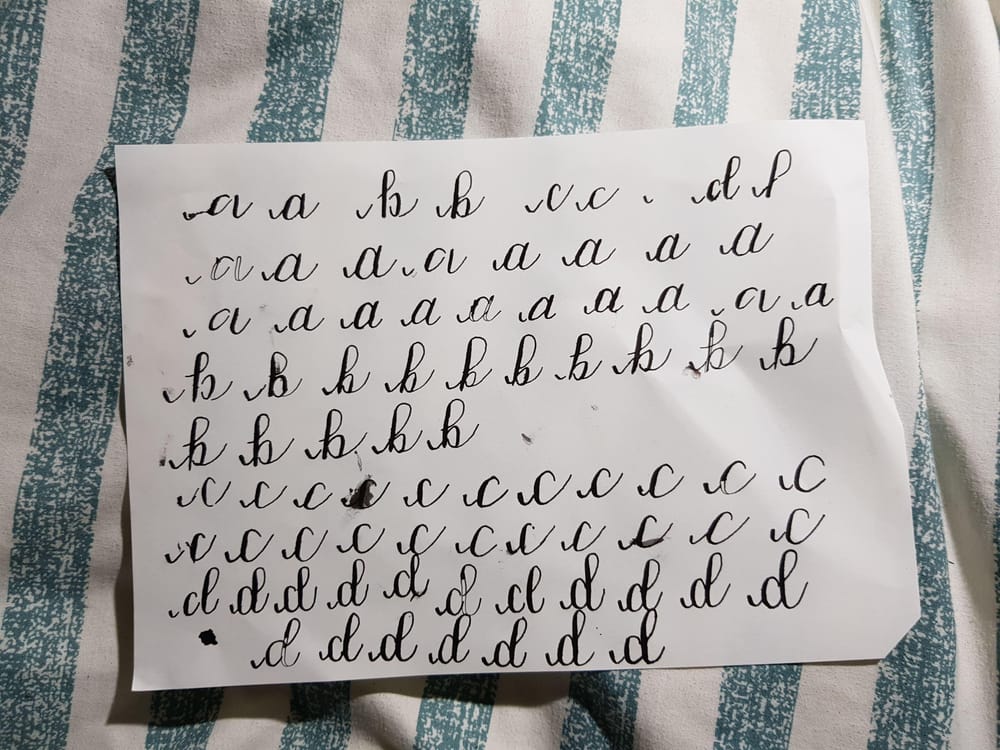 a a b b c c . d l
a a a a a a a a
a a a a a a a a a a
b b b b b b b b b b
b b b b b
c c c c c c c c c c c
c c c c c c c c c c c
d d d d d d d d d d d
d d d d d d d